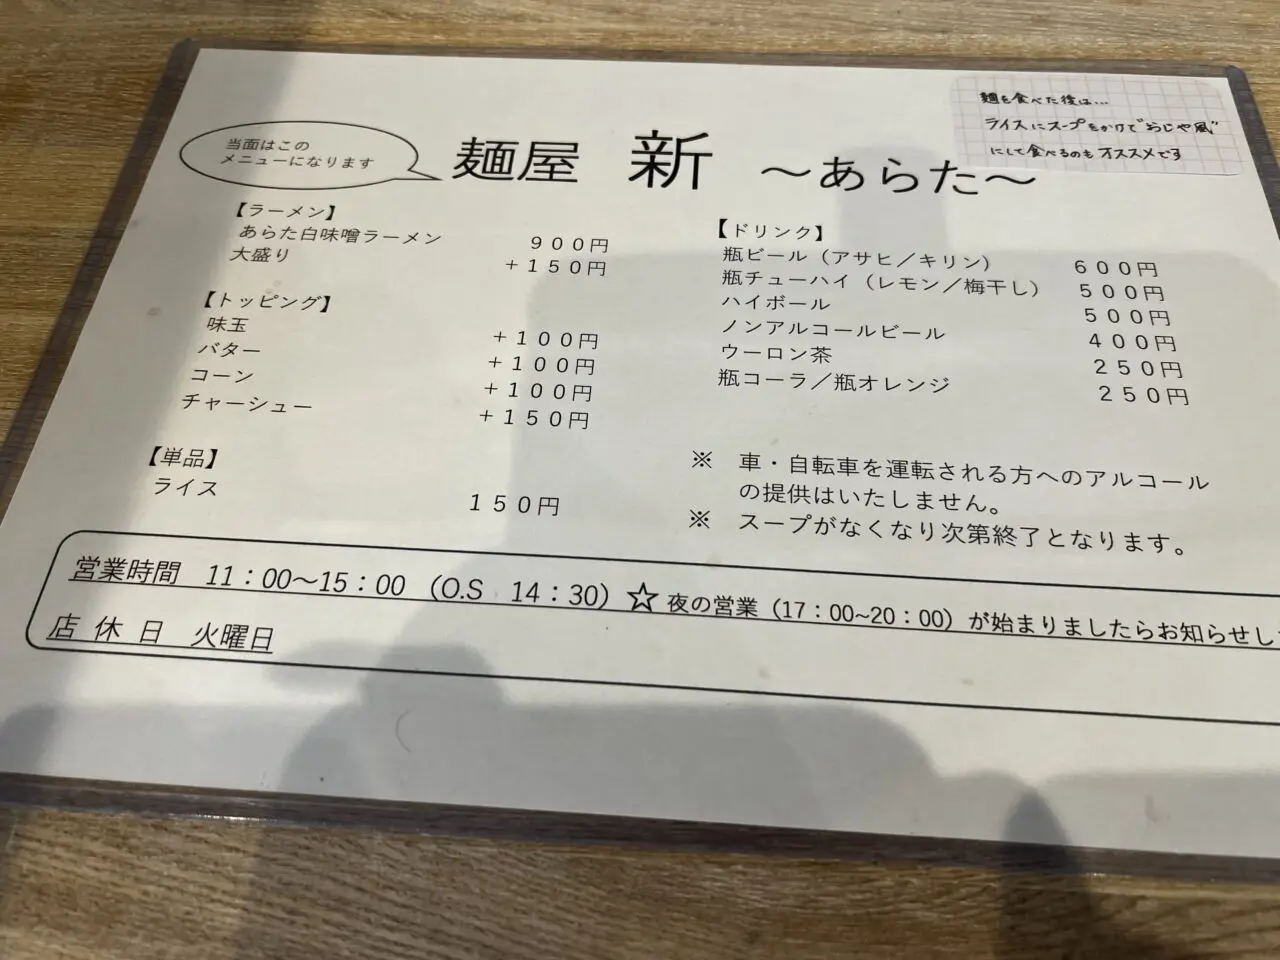 麺を食べた後は…
ライスにスープをかけて"おじや風"
にして食べるのもオススメです
当面はこの
メニューになります
麺屋 新 ～あらた～
【ラーメン】
あらた白味噌ラーメン 900円
大盛り +150円
【トッピング】
味玉 +100円
バター +100円
コーン +100円
チャーシュー +150円
【単品】
ライス 150円
【ドリンク】
瓶ビール（アサヒ／キリン） 600円
瓶チューハイ（レモン／梅干し） 500円
ハイボール 500円
ノンアルコールビール 400円
ウーロン茶 250円
瓶コーラ／瓶オレンジ 250円
※ 車・自転車を運転される方へのアルコール
の提供はいたしません。
※ スープがなくなり次第終了となります。
営業時間 11：00～15：00 （O.S 14：30）☆夜の営業（17：00~20：00）が始まりましたらお知らせし
店休日 火曜日